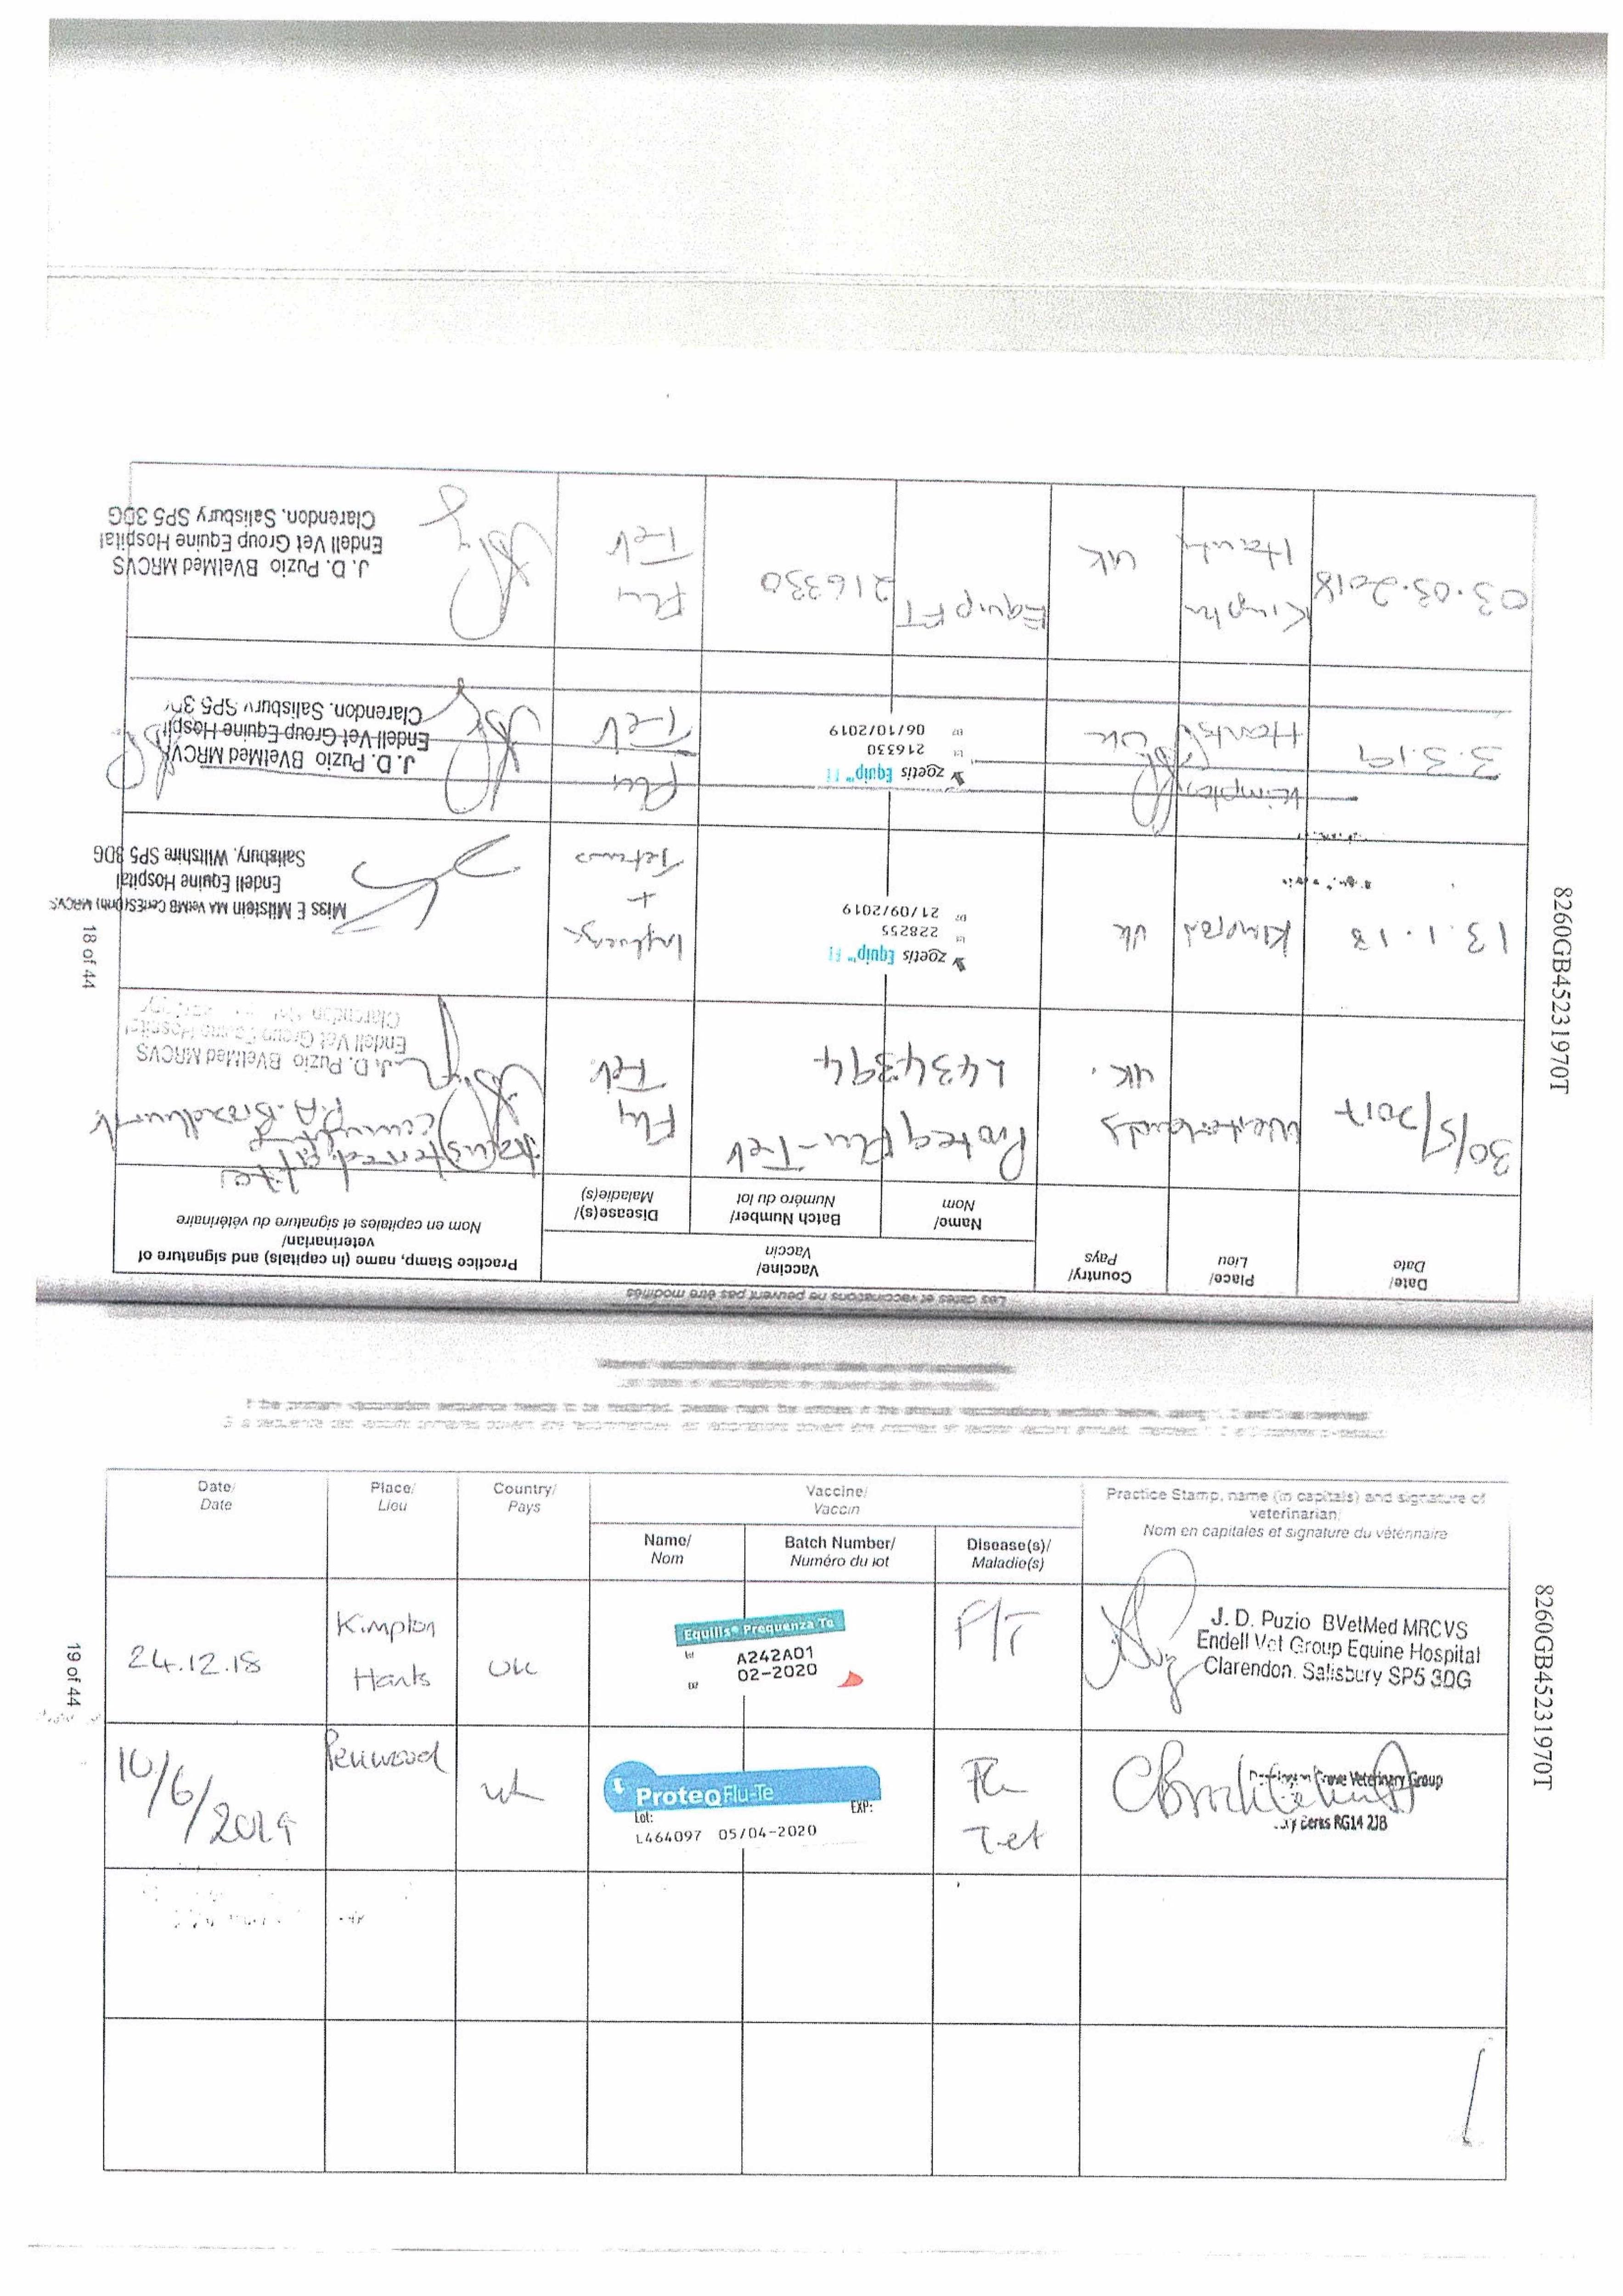 8260GB45231970T
18 of 44
Les dates et vaccinations ne peuvent pas être modifiés
Date/
Date
Place/
Lieu
Country/
Pays
Vaccine/
Vaccin
Name/
Nom
Batch Number/
Numéro du lot
Disease(s)/
Maladie(s)
Practice Stamp, name (in capitals) and signature of
veterinarian/
Nom en capitales et signature du vétérinaire
30/5/2017
UK.
ProteqFlu-Tet
L434394
Flu
Tet.
J. D. Puzio BVetMed MRCVS
Endell Vet Group Equine Hospital
Clarendon
13.1.18
Kimpton
UK
zoetis Equip™ FT
228255
21/09/2019
Influenza
+
Tetanus
Miss E Milstein MA VetMB CertES(Orth) MRCVS
Endell Equine Hospital
Salisbury. Wiltshire SP5 3DG
3.3.19
Kimpton
Hants
UK
zoetis Equip™ FT
216330
06/10/2019
Flu
Tet
J. D. Puzio BVetMed MRCVS
Endell Vet Group Equine Hospital
Clarendon. Salisbury SP5 3DG
03.03.2018
Kimpton
Hants
UK
Equip FT
216330
Flu
Tet
J. D. Puzio BVetMed MRCVS
Endell Vet Group Equine Hospital
Clarendon. Salisbury SP5 3DG
8260GB45231970T
19 of 44
Date/
Date
Place/
Lieu
Country/
Pays
Vaccine/
Vaccin
Name/
Nom
Batch Number/
Numéro du lot
Disease(s)/
Maladie(s)
Practice Stamp, name (in capitals) and signature of
veterinarian/
Nom en capitales et signature du vétérinaire
24.12.18
Kimpton
Hants
UK
Equilis® Prequenza Te
A242A01
02-2020
F/T
J. D. Puzio BVetMed MRCVS
Endell Vet Group Equine Hospital
Clarendon. Salisbury SP5 3DG
10/6/2019
Penwood
UK
ProteqFlu-Te
Lot: EXP:
L464097 05/04-2020
Flu
Tet
Grove Veterinary Group
Berks RG14 2JB